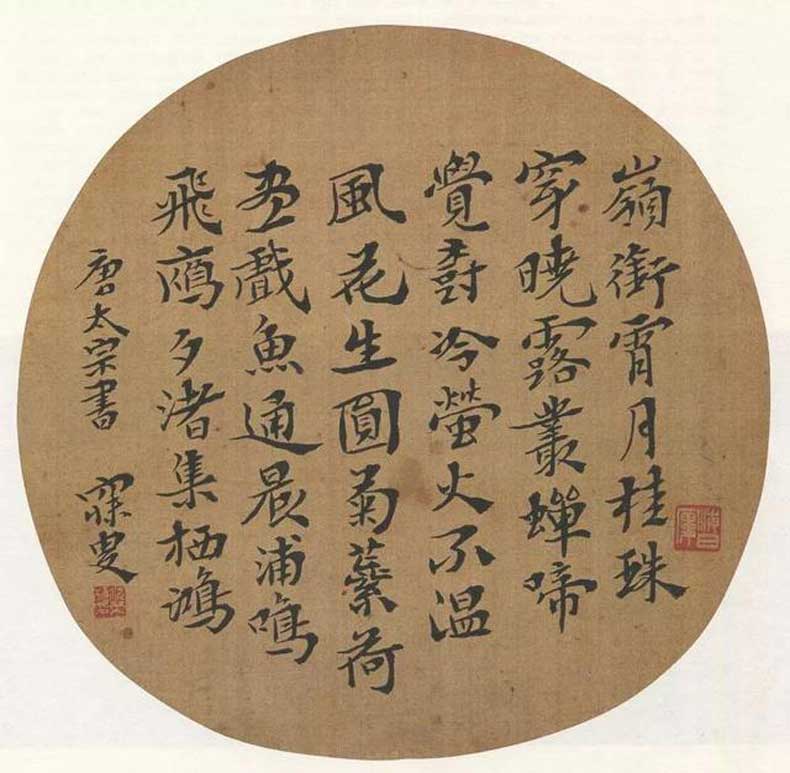 嶺銜霄月桂珠
穿曉露叢蟬啼
覺尌冷螢火不温
風花生圓菊蘂荷
盡戲魚通晨浦鳴
飛鴈夕渚集栖鴻
唐太宗書 寐叟